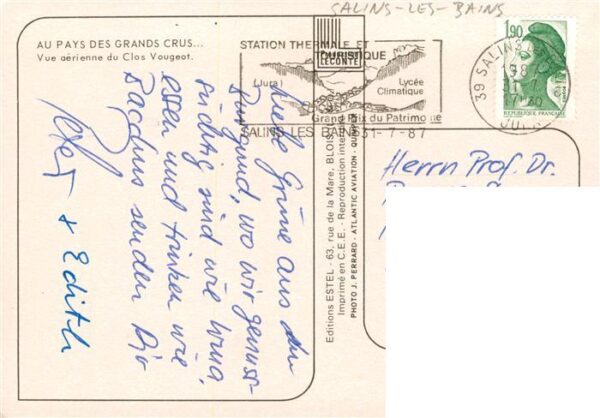 SALINS-LES-BAINS
AU PAYS DES GRANDS CRUS...
Vue aérienne du Clos Vougeot.
STATION THERMALE ET
TOURISTIQUE
LECONTE
(Jura)
Lycée
Climatique
Grand Prix du Patrimoine
SALINS LES BAINS 31-7-87
1,90
REPUBLIQUE FRANÇAISE
39 SALINS
31
17-30
JURA
Liebe Grüße aus dem
Burgund, wo wir
sind wie
essen und trinken wie
Bacchus senden Dir
+ Edith
Editions ESTEL - 63, rue de la Mare, BLOIS
Imprimé en C.E.E. - Reproduction inter
PHOTO J. PERRARD - ATLANTIC AVIATION -
Herrn Prof. Dr.